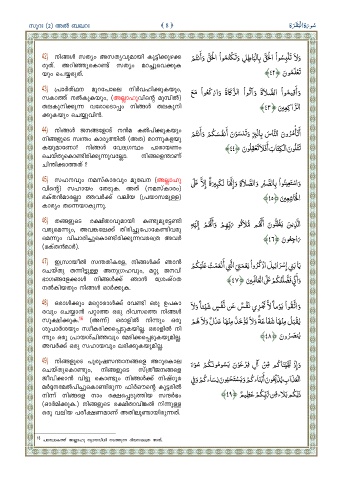 സൂറ (2) അൽ ബഖറ
( 8 )
سورة البقرة
42) നിങ്ങൾ സത്യം അസത്യവുമായി കൂട്ടിക്കുഴക്ക
രുത്. അറിഞ്ഞുകൊണ്ട് സത്യം മറച്ചുവെക്കുക
യും ചെയ്യരുത്.
وَلَا تَلْبِسُوا الْحَقَّ بِالْبَاطِلِ وَتَكْتُمُوا الْحَقَّ وَأَنتُمْ
تَعْلَمُونَ ﴿٤٢﴾
43) പ്രാർത്ഥന മുറപോലെ നിർവഹിക്കുകയും,
സകാത്ത് നൽകുകയും, (അല്ലാഹുവിന്റെ മുമ്പിൽ)
തലകുനിക്കുന്ന വരോടൊപ്പം നിങ്ങൾ തലകുനി
ക്കുകയും ചെയ്യുവിൻ.
وَأَقِيمُوا الصَّلَاةَ وَآتُوا الزَّكَاةَ وَارْكَعُوا مَعَ
الرَّاكِعِينَ ﴿٤٣﴾
44) നിങ്ങൾ ജനങ്ങളോട് നന്മ കല്പിക്കുകയും
നിങ്ങളുടെ സ്വന്തം കാര്യത്തിൽ (അത്) മറന്നുകളയു
കയുമാണോ? നിങ്ങൾ വേദഗ്രന്ഥം പാരായണം
ചെയ്തുകൊണ്ടിരിക്കുന്നുവല്ലോ. നിങ്ങളെന്താണ്
ചിന്തിക്കാത്തത് ?
أَتَأْمُرُونَ النَّاسَ بِالْبِرِّ وَتَنسَوْنَ أَنفُسَكُمْ وَأَنتُمْ
تَتْلُونَ الْكِتَابَ أَفَلَا تَعْقِلُونَ ﴿٤٤﴾
45) സഹനവും നമസ്കാരവും മുഖേന (അല്ലാഹു
വിന്റെ) സഹായം തേടുക. അത് (നമസ്കാരം)
ഭക്തന്മാരല്ലാ ത്തവർക്ക് വലിയ (പ്രയാസമുള്ള)
കാര്യം തന്നെയാകുന്നു.
وَاسْتَعِينُوا بِالصَّبْرِ وَالصَّلَاةِ وَإِنَّهَا لَكَبِيرَةٌ إِلَّا عَلَى
الْخَاشِعِينَ ﴿٤٥﴾
46) തങ്ങളുടെ രക്ഷിതാവുമായി കണ്ടുമുട്ടേണ്ടി
വരുമെന്നും, അവങ്കലേക്ക് തിരിച്ചുപോകേണ്ടിവരു
മെന്നും വിചാരിച്ചുകൊണ്ടിരിക്കുന്നവരത്രെ അവർ
(ഭക്തന്മാർ).
الَّذِينَ يَظُنُّونَ أَنَّهُم مُّلَاقُو رَبِّهِمْ وَأَنَّهُمْ إِلَيْهِ
رَاجِعُونَ ﴿٤٦﴾
47) ഇസ്രായീൽ സന്തതികളേ, നിങ്ങൾക്ക് ഞാൻ
ചെയ്തു തന്നിട്ടുള്ള അനുഗ്രഹവും, മറ്റു ജനവി
ഭാഗങ്ങളേക്കാൾ നിങ്ങൾക്ക് ഞാൻ ശ്രേഷ്ഠത
നൽകിയതും നിങ്ങൾ ഓർക്കുക.
يَا بَنِي إِسْرَائِيلَ اذْكُرُوا نِعْمَتِيَ الَّتِي أَنْعَمْتُ عَلَيْكُمْ
وَأَنِّي فَضَّلْتُكُمْ عَلَى الْعَالَمِينَ ﴿٤٧﴾
48) ഒരാൾക്കും മറ്റൊരാൾക്ക് വേണ്ടി ഒരു ഉപകാ
രവും ചെയ്യാൻ പറ്റാത്ത ഒരു ദിവസത്തെ നിങ്ങൾ
സൂക്ഷിക്കുക. (അന്ന്) ഒരാളിൽ നിന്നും ഒരു
ശുപാർശയും സ്വീകരിക്കപ്പെടുകയില്ല. ഒരാളിൽ നി
ന്നും ഒരു പ്രായശ്ചിത്തവും മേടിക്കപ്പെടുകയുമില്ല.
അവർക്ക് ഒരു സഹായവും ലഭിക്കുകയുമില്ല.
وَاتَّقُوا يَوْمًا لَّا تَجْزِي نَفْسٌ عَن نَّفْسٍ شَيْئًا وَلَا
يُقْبَلُ مِنْهَا شَفَاعَةٌ وَلَا يُؤْخَذُ مِنْهَا عَدْلٌ وَلَا هُمْ
يُنصَرُونَ ﴿٤٨﴾
49) നിങ്ങളുടെ പുരുഷസന്താനങ്ങളെ അറുകൊല
ചെയ്തുകൊണ്ടും, നിങ്ങളുടെ സ്ത്രീജനങ്ങളെ
ജീവിക്കാൻ വിട്ടു കൊണ്ടും നിങ്ങൾക്ക് നിഷ്ഠൂര
മർദ്ദനമേൽപിച്ചുകൊണ്ടിരുന്ന ഫിർഔന്റെ കൂട്ടരിൽ
നിന്ന് നിങ്ങളെ നാം രക്ഷപ്പെടുത്തിയ സന്ദർഭം
(ഓർമിക്കുക.) നിങ്ങളുടെ രക്ഷിതാവിങ്കൽ നിന്നുള്ള
ഒരു വലിയ പരീക്ഷണമാണ് അതിലുണ്ടായിരുന്നത്.
وَإِذْ نَجَّيْنَاكُم مِّنْ آلِ فِرْعَوْنَ يَسُومُونَكُمْ سُوءَ
الْعَذَابِ يُذَبِّحُونَ أَبْنَاءَكُمْ وَيَسْتَحْيُونَ نِسَاءَكُمْ وَفِي
ذَٰلِكُم بَلَاءٌ مِّن رَّبِّكُمْ عَظِيمٌ ﴿٤٩﴾